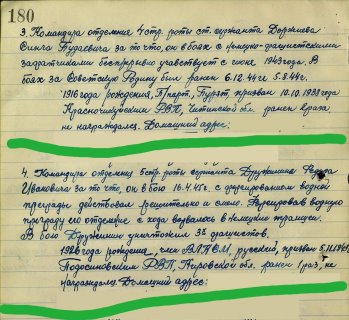 180
3. Командира отделения 4 стр. роты ст. сержанта Доржиева
за то что, он в боях с немецко-фашистскими
захватчиками беспрерывно участвует с июня 1943 года. В
боях за Советскую Родину был ранен 6.12.44г 5.8.44г.
1916 года рождения, бурят, призван 10.10.1938 года
РВК, Читинской обл. ранен враза
не награждался. Домашний адрес:
4. Командира отделения 5 стр. роты сержанта Дружинина
Ивановича за то что, он в бою 16.4.45г. с форсированием водной
преграды действовал решительно и смело. Форсировав водную
преграду его отделение с хода ворвалось в немецкие траншеи.
В бою Дружинин уничтожил 3х фашистов.
1926 года рождения, член ВЛКСМ, русский, призван
Подосиновским РВК, Кировской обл. ранен 1 раз, не
награждался Домашний адрес: